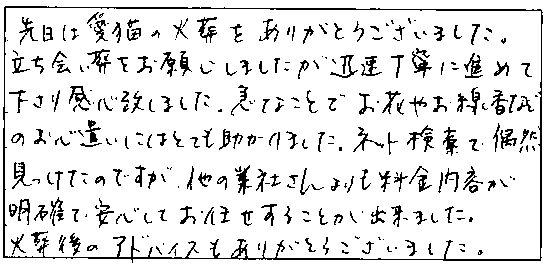 先日は愛猫の火葬をありがとうございました。
立ち会い葬をお願いしましたが迅速丁寧に進めて
下さり感心致しました。急なことでお花やお線香など
のお心遣いにはとても助かりました。ネット検索で偶然
見つけたのですが、他の業社さんよりも料金内容が
明確で安心してお任せすることが出来ました。
火葬後のアドバイスもありがとうございました。